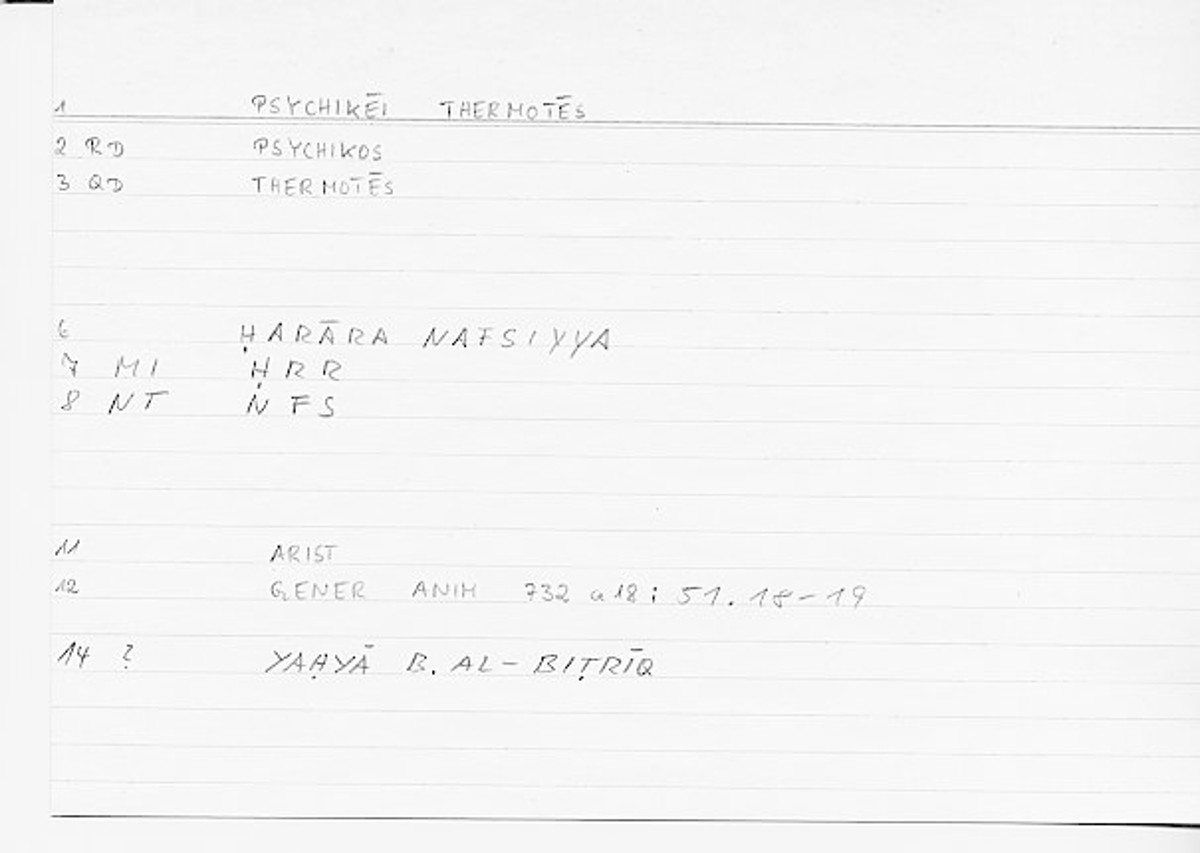 1 PSYCHIKĒI THERMOTĒS
2 RD PSYCHIKOS
3 QD THERMOTĒS
6 ḤARĀRA NAFSIYYA
7 MI ḤRR
8 NT NFS
11 ARIST
12 GENER ANIM 732 a 18 ; 51. 18-19
14 ? YAḤYĀ B. AL-BIṬRĪQ